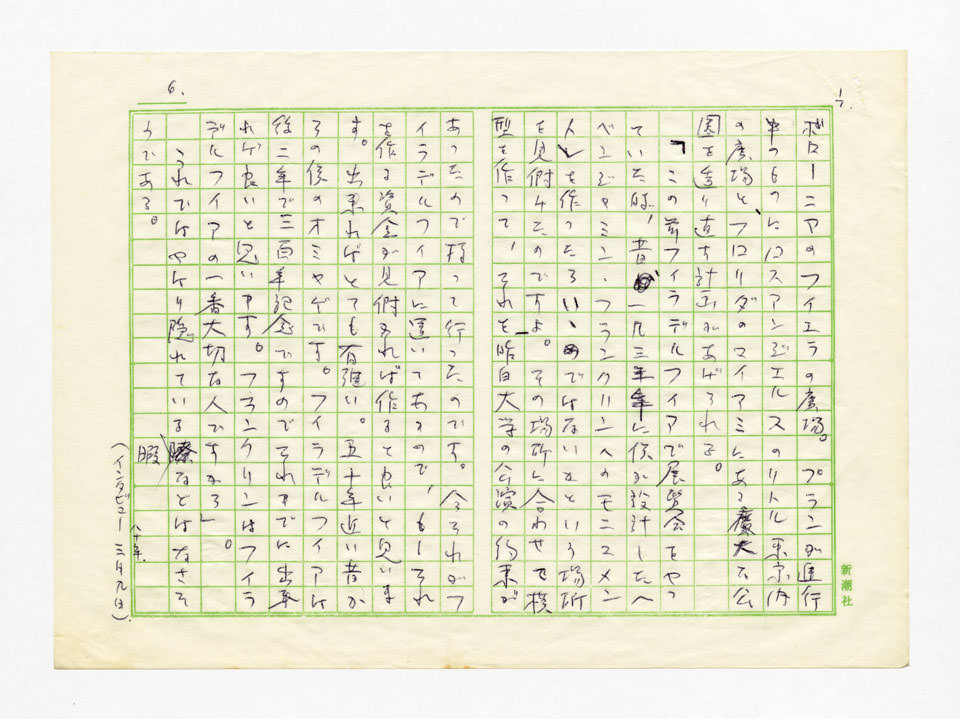 6.
ボローニアのフイエラの広場。プランが進行
中のものにロスアンジエルスのリトル東京内
の広場と、フロリダのマイアミにある廣大な公
園を造り直す計画があげられる。
「この前フイラデルフイアで展覧会をやつ
ていた時、昔一九三三年に僕が設計したベ
ベンジヤミン・フランクリンへのモニユメン
トを作つたらいゝのではないかという場所
を見付けたのですよ。その場所に合わせて模
型を作つて、それを昨日大学の公演の約束が
あつたので持って行ったのです。今それがフ
イラデルフイアに置いてあるので、もしそれ
を作る資金が見付かれば作ると良いと思いま
す。出来ればとても有難い。五十年近い昔か
らの僕のオミヤゲです。フイラデルフイアは
後二年で三百年記念ですのでそれまでに出来
れば良いと思います。フランクリンはフイラ
デルフイアの一番大切な人ですから」。
これではやはり隠れている暇などはなさそ
うである。
(インタビュー 八十年、三月九日).
新潮社